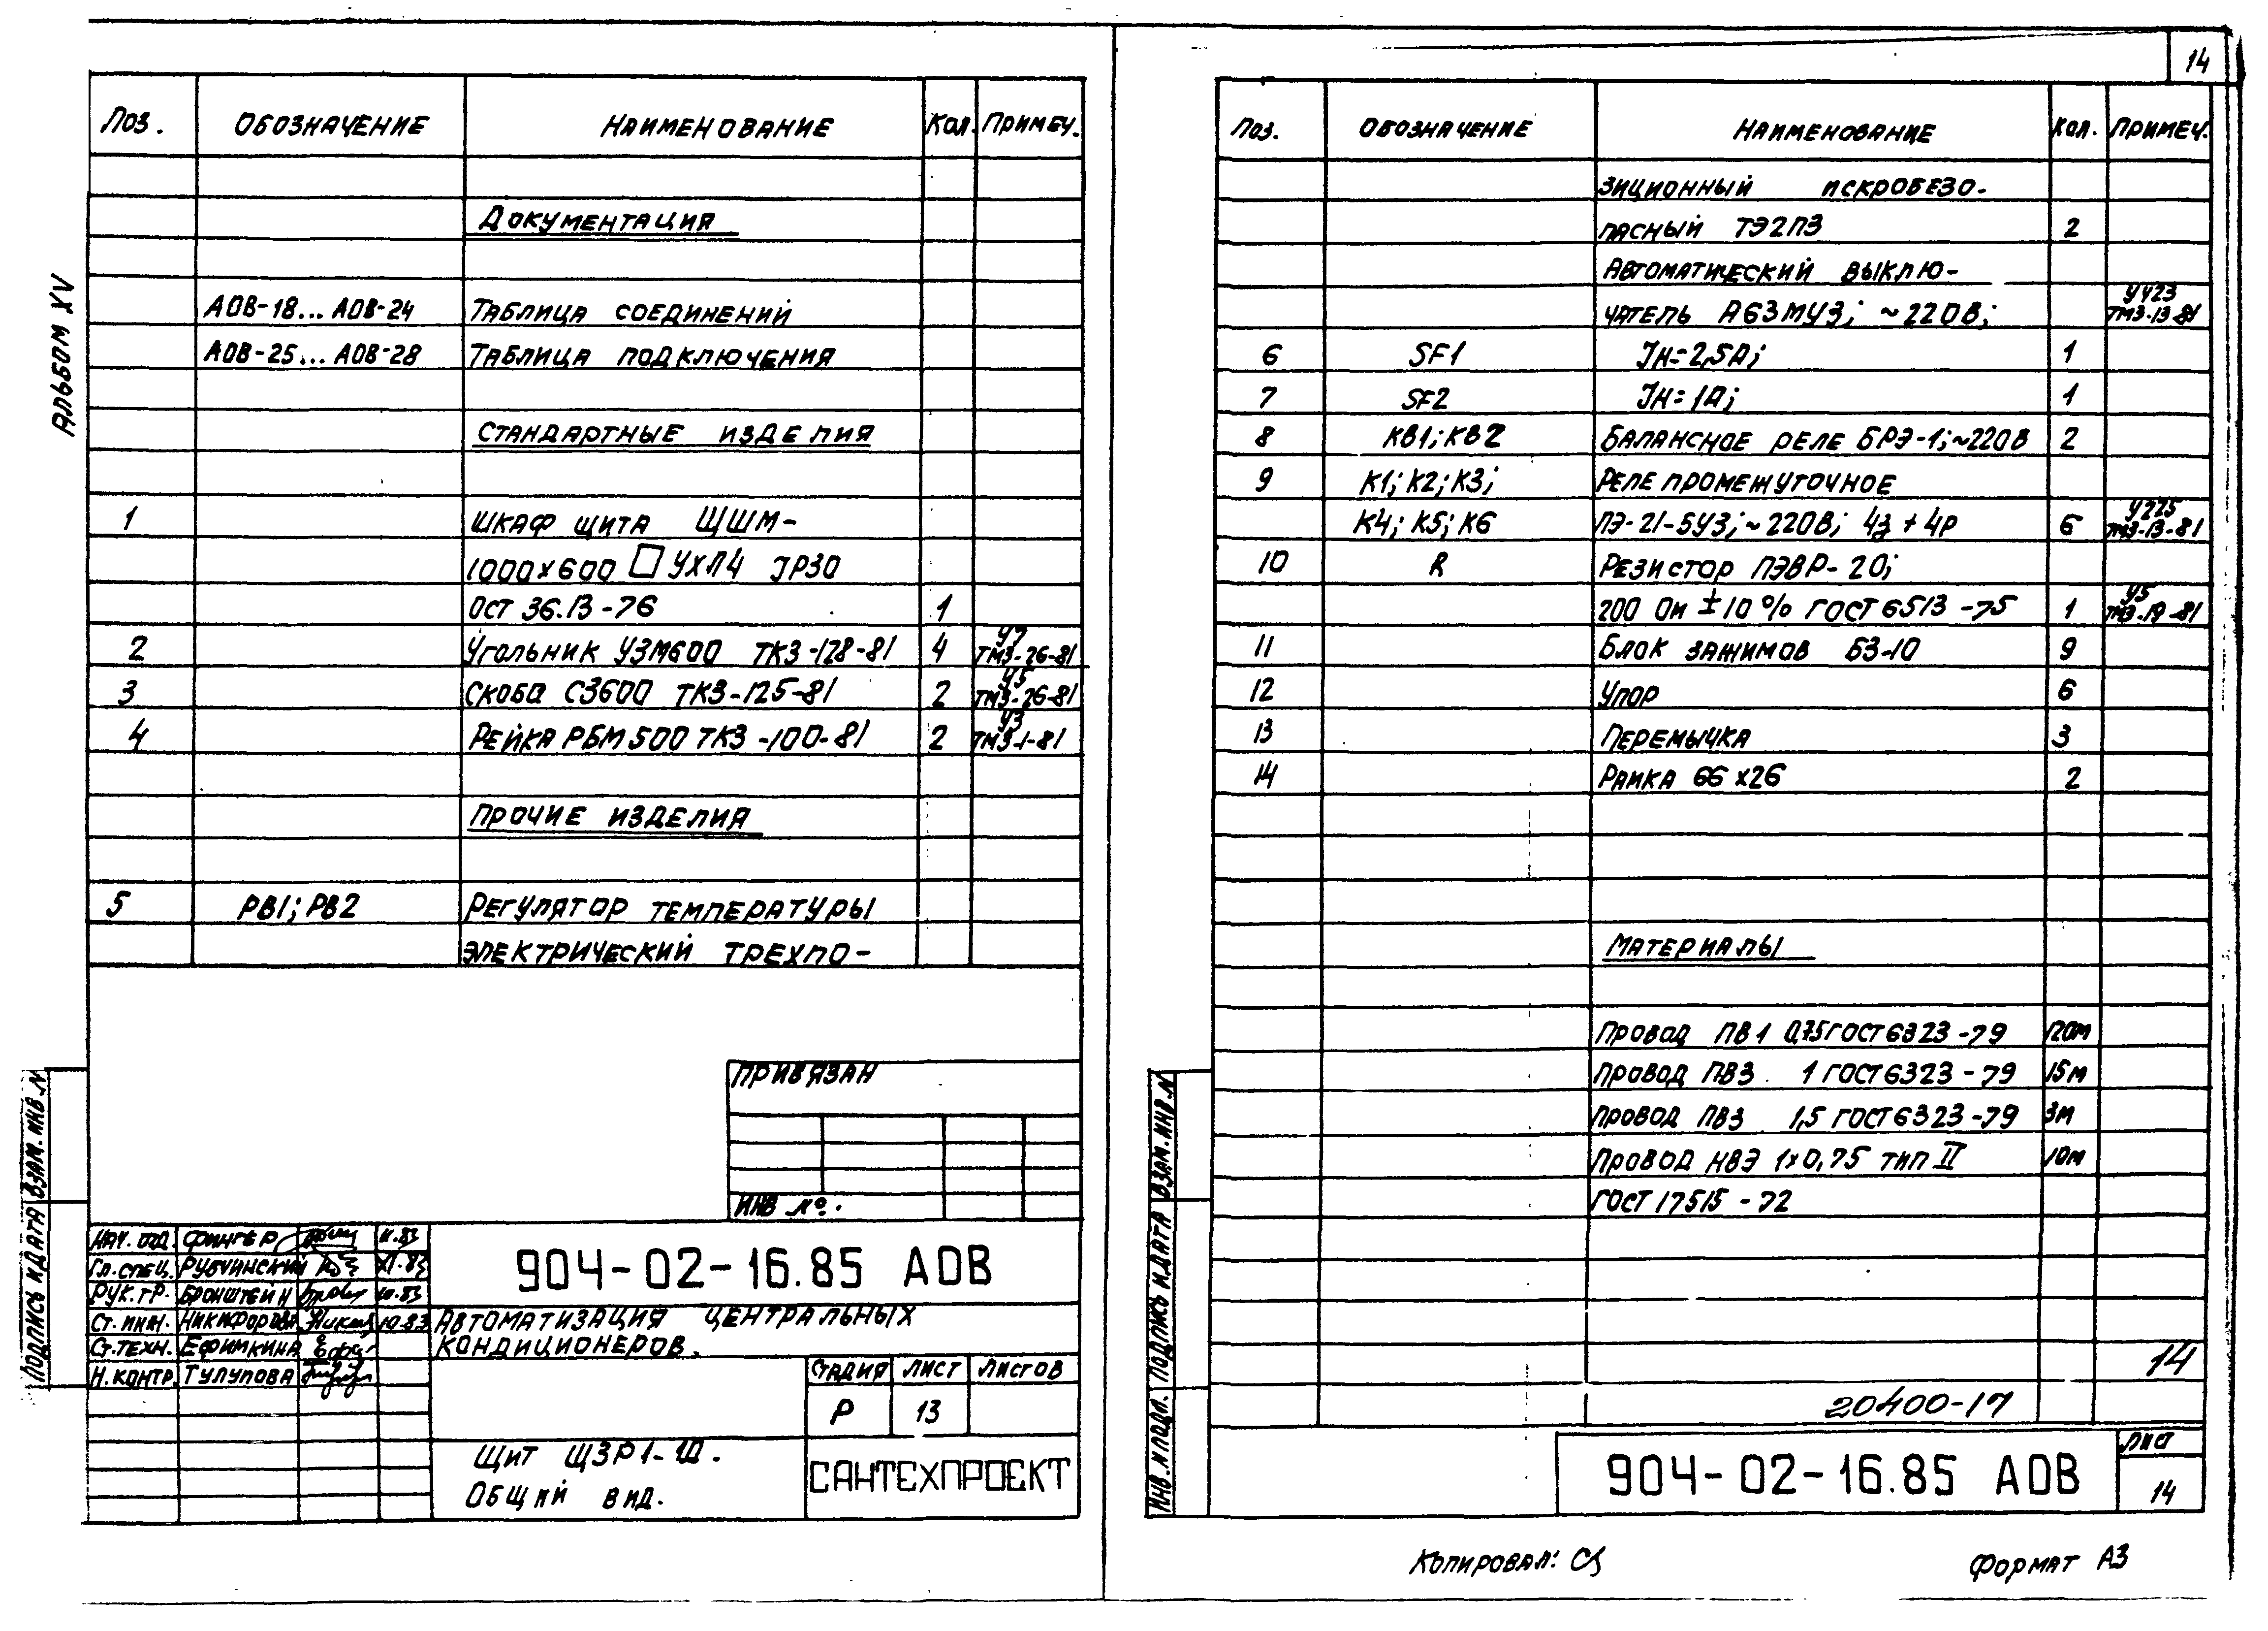 14
АЛЬБОМ XV
Поз. ОБОЗНАЧЕНИЕ НАИМЕНОВАНИЕ Кол. ПРИМЕЧ.
ДОКУМЕНТАЦИЯ
АОВ-18... АОВ-24 ТАБЛИЦА СОЕДИНЕНИЙ
АОВ-25... АОВ-28 ТАБЛИЦА ПОДКЛЮЧЕНИЯ
СТАНДАРТНЫЕ ИЗДЕЛИЯ
1 ШКАФ ЩИТА ЩШМ-
1000х600 □ УХЛ4 JP30
ОСТ 36.13-76 1
2 Угольник УЗМ600 ТК3-128-81 4 У7 ТМ3-26-81
3 Скоба С3600 ТК3-125-81 2 У5 ТМ3-26-81
4 РЕЙКА РБМ500 ТК3-100-81 2 У3 ТМ3-1-81
ПРОЧИЕ ИЗДЕЛИЯ
5 РВ1; РВ2 РЕГУЛЯТОР ТЕМПЕРАТУРЫ
ЭЛЕКТРИЧЕСКИЙ ТРЕХПО-
ПРИВЯЗАН
ИНВ №.
ПОДПИСЬ И ДАТА ВЗАМ. ИНВ. N
НАЧ. ОТД. ФИНГЕР 11.83
Гл. СПЕЦ. РУБЧИНСКИЙ XI.83
РУК. ГР. БРОНШТЕЙН 10.83
СТ. ИНЖ. НИКИФОРОВА 10.83
СТ. ТЕХН. ЕФИМКИНА
Н. КОНТР. ТУЛУПОВА
904-02-16.85 АОВ
АВТОМАТИЗАЦИЯ ЦЕНТРАЛЬНЫХ
КОНДИЦИОНЕРОВ.
СТАДИЯ ЛИСТ ЛИСТОВ
Р 13
ЩИТ ЩЗР1-Ш.
ОБЩИЙ ВИД.
САНТЕХПРОЕКТ
Поз. ОБОЗНАЧЕНИЕ НАИМЕНОВАНИЕ Кол. ПРИМЕЧ.
ЗИЦИОННЫЙ ИСКРОБЕЗО-
ПАСНЫЙ ТЭ2ПЗ 2
АВТОМАТИЧЕСКИЙ ВЫКЛЮ-
ЧАТЕЛЬ А63МУ3; ~220В; У423 ТМ3-13-81
6 SF1 Jн=2,5А; 1
7 SF2 Jн=1А; 1
8 КВ1; КВ2 БАЛАНСНОЕ РЕЛЕ БРЭ-1; ~220В 2
9 К1; К2; К3; РЕЛЕ ПРОМЕЖУТОЧНОЕ
К4; К5; К6 ПЭ-21-5У3; ~220В; 4з + 4р 6 У225 ТМ3-13-81
10 R РЕЗИСТОР ПЭВР-20;
200 Ом ±10% ГОСТ 6513-75 1 У5 ТМ3-19-81
11 БЛОК ЗАЖИМОВ БЗ-10 9
12 Упор 6
13 ПЕРЕМЫЧКА 3
14 РАМКА 66х26 2
МАТЕРИАЛЫ
ПРОВОД ПВ1 0,75 ГОСТ 6323-79 120м
ПРОВОД ПВ3 1 ГОСТ 6323-79 15м
ПРОВОД ПВ3 1,5 ГОСТ 6323-79 3м
ПРОВОД НВЭ 1х0,75 ТИП II 10м
ГОСТ 17515-72
14
20400-17
ИНВ. N ПОДЛ. ПОДПИСЬ И ДАТА ВЗАМ. ИНВ. N
904-02-16.85 АОВ
ЛИСТ
14
Копировал:
ФОРМАТ А3